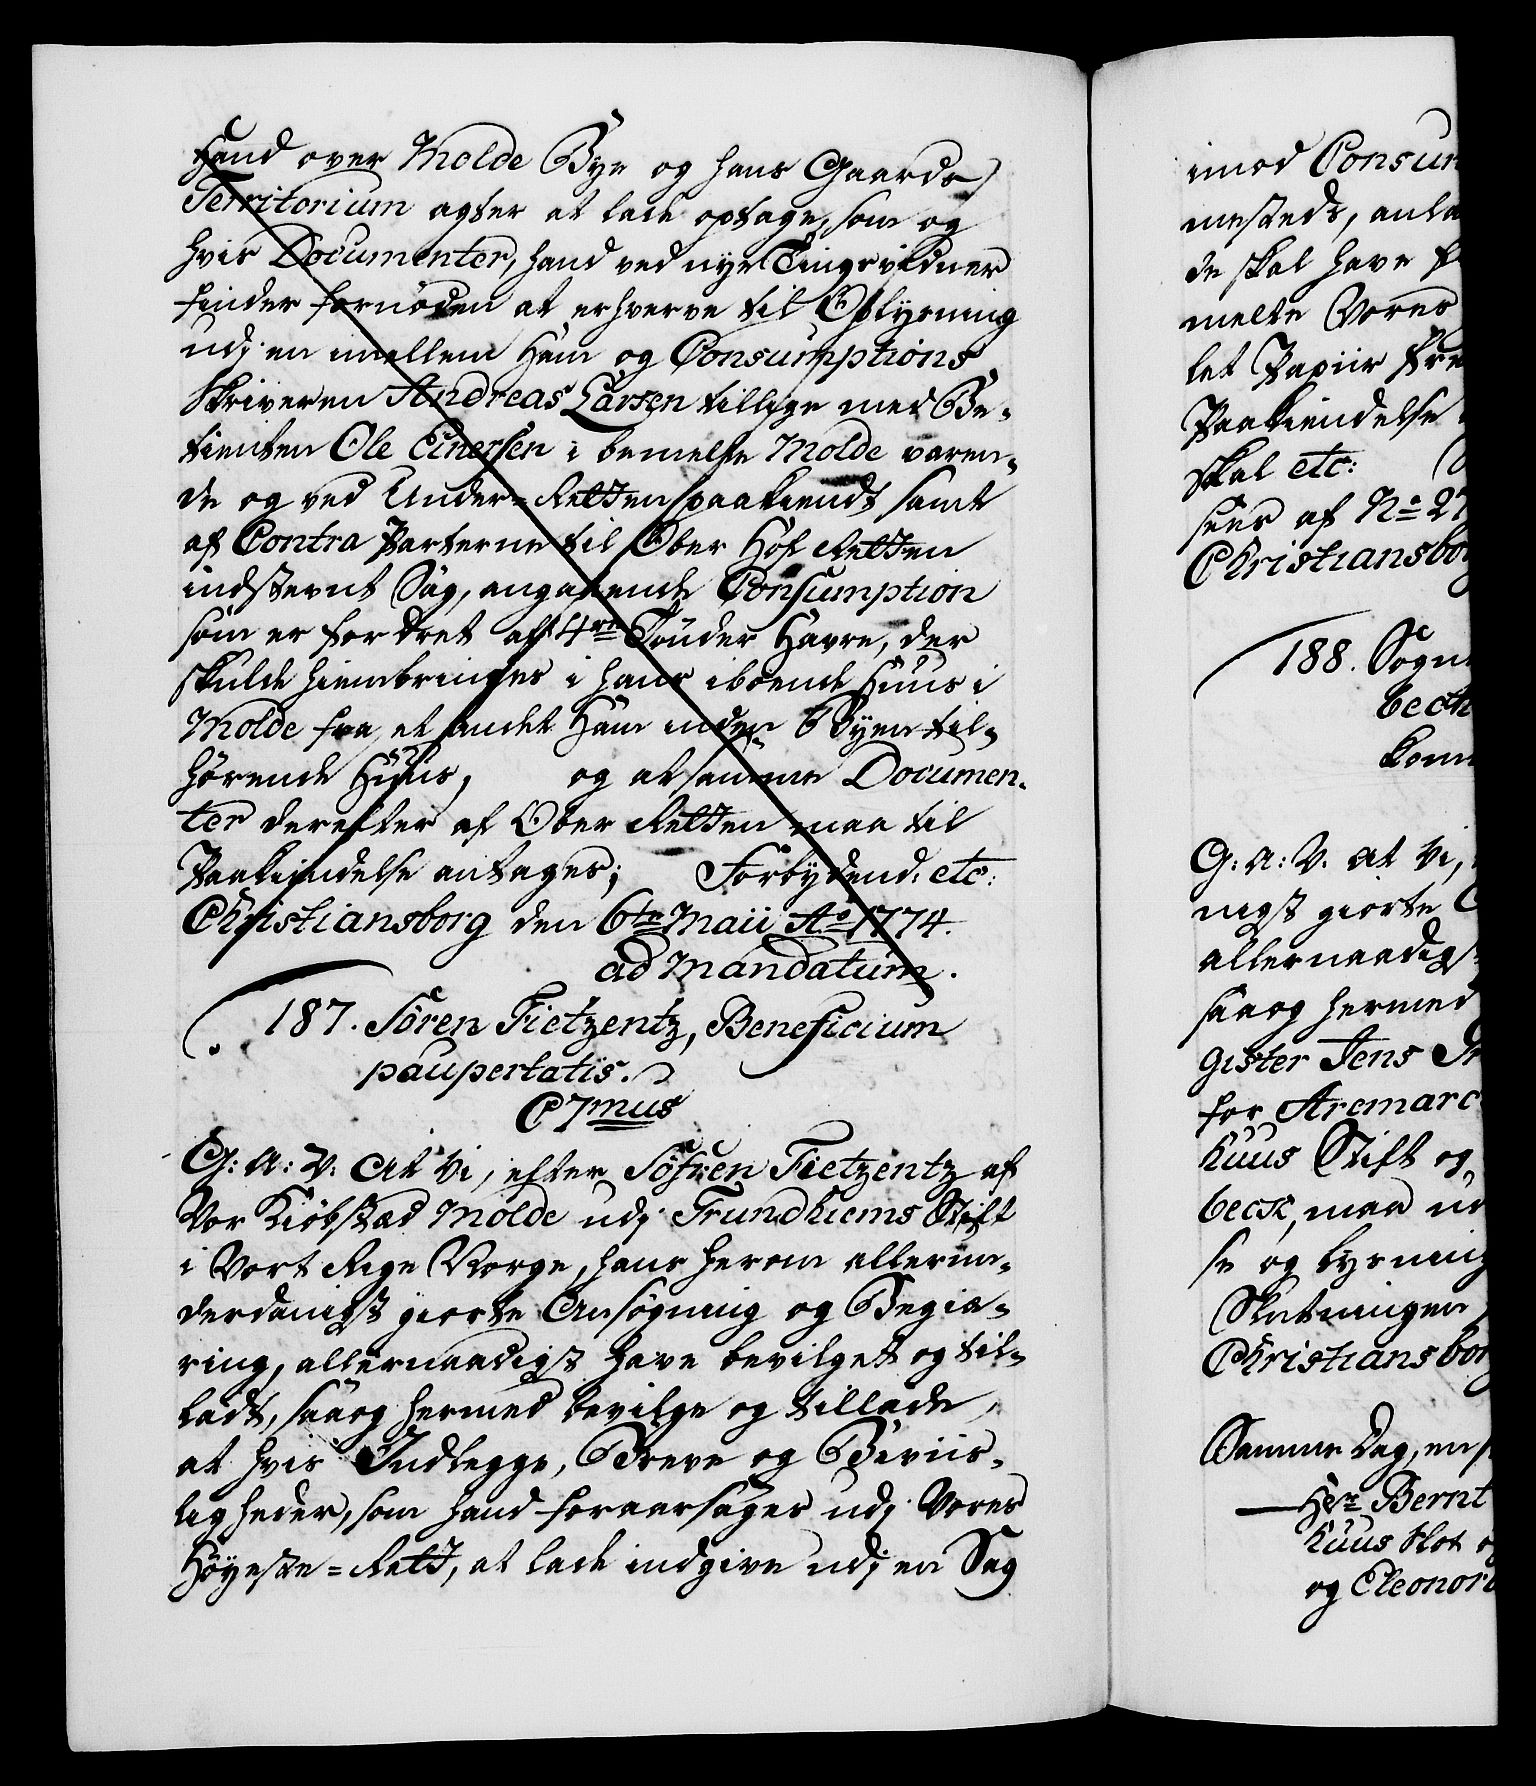 Hand over Molde Bye og hans Gaards
Territorium agter at lade optage, som og
hvis Documenter, hand ved nye Tingsvidner
finder fornöden at erhverve til Oplysning
udj en imellem Ham og Consumptions
Skriveren Andreas Larsen tillige med Be-
tienten Ole Einersen i bemelte Molde væren-
de og ved Under-Retten paakiendt samt
af Contra Parterne til Ober Hof Retten
indstevnt Sag, angaaende Consumption
som er fordret af 4re Tönder Havre, der
skulde hiembringes i hans iboende Huus i
Molde fra et andet Ham inden Byen til-
hørende Huus, og at samme Documen-
ter derefter af Ober Retten maa til
Paakiendelse antages; Forbydend: etc:
Christiansborg den 6te Maii Ao 1774.
ad Mandatum.
187. Sören Fietzentz, Beneficium
paupertatis.
C7mus
G: A: V: At Vi, efter Söfren Fietzentz af
Vor Kiöbstæd Molde udj Trundhiems Stift
i Vort Rige Norge, hans herom allerun-
derdanigst giorte Ansøgning og Begiæ-
ring, allernaadigst have bevilget og til-
ladt, saa og hermed bevilge og tillade,
at hvis Indlegge, Breve og Beviis-
ligheder, som hand foraarsages udj Vores
Höyeste-Rett, at lade indgive udj en Sag
imod Consum
mesteds, anla
de skal have
melte Vores
let Papiir
Paakiendelse
skal etc:
sees af No 27
Christiansborg
188. Sogne
bech
Kom
G: A: V: at Vi,
nigst giorte
allernaadigst
saa og hermed
gister Jens
for Aremarc
huus Stift og
beck, maa
se og lysning
Slutningen
Christiansborg
Samme Dag, en
Hr Bernt
huus Slot
og Eleonora